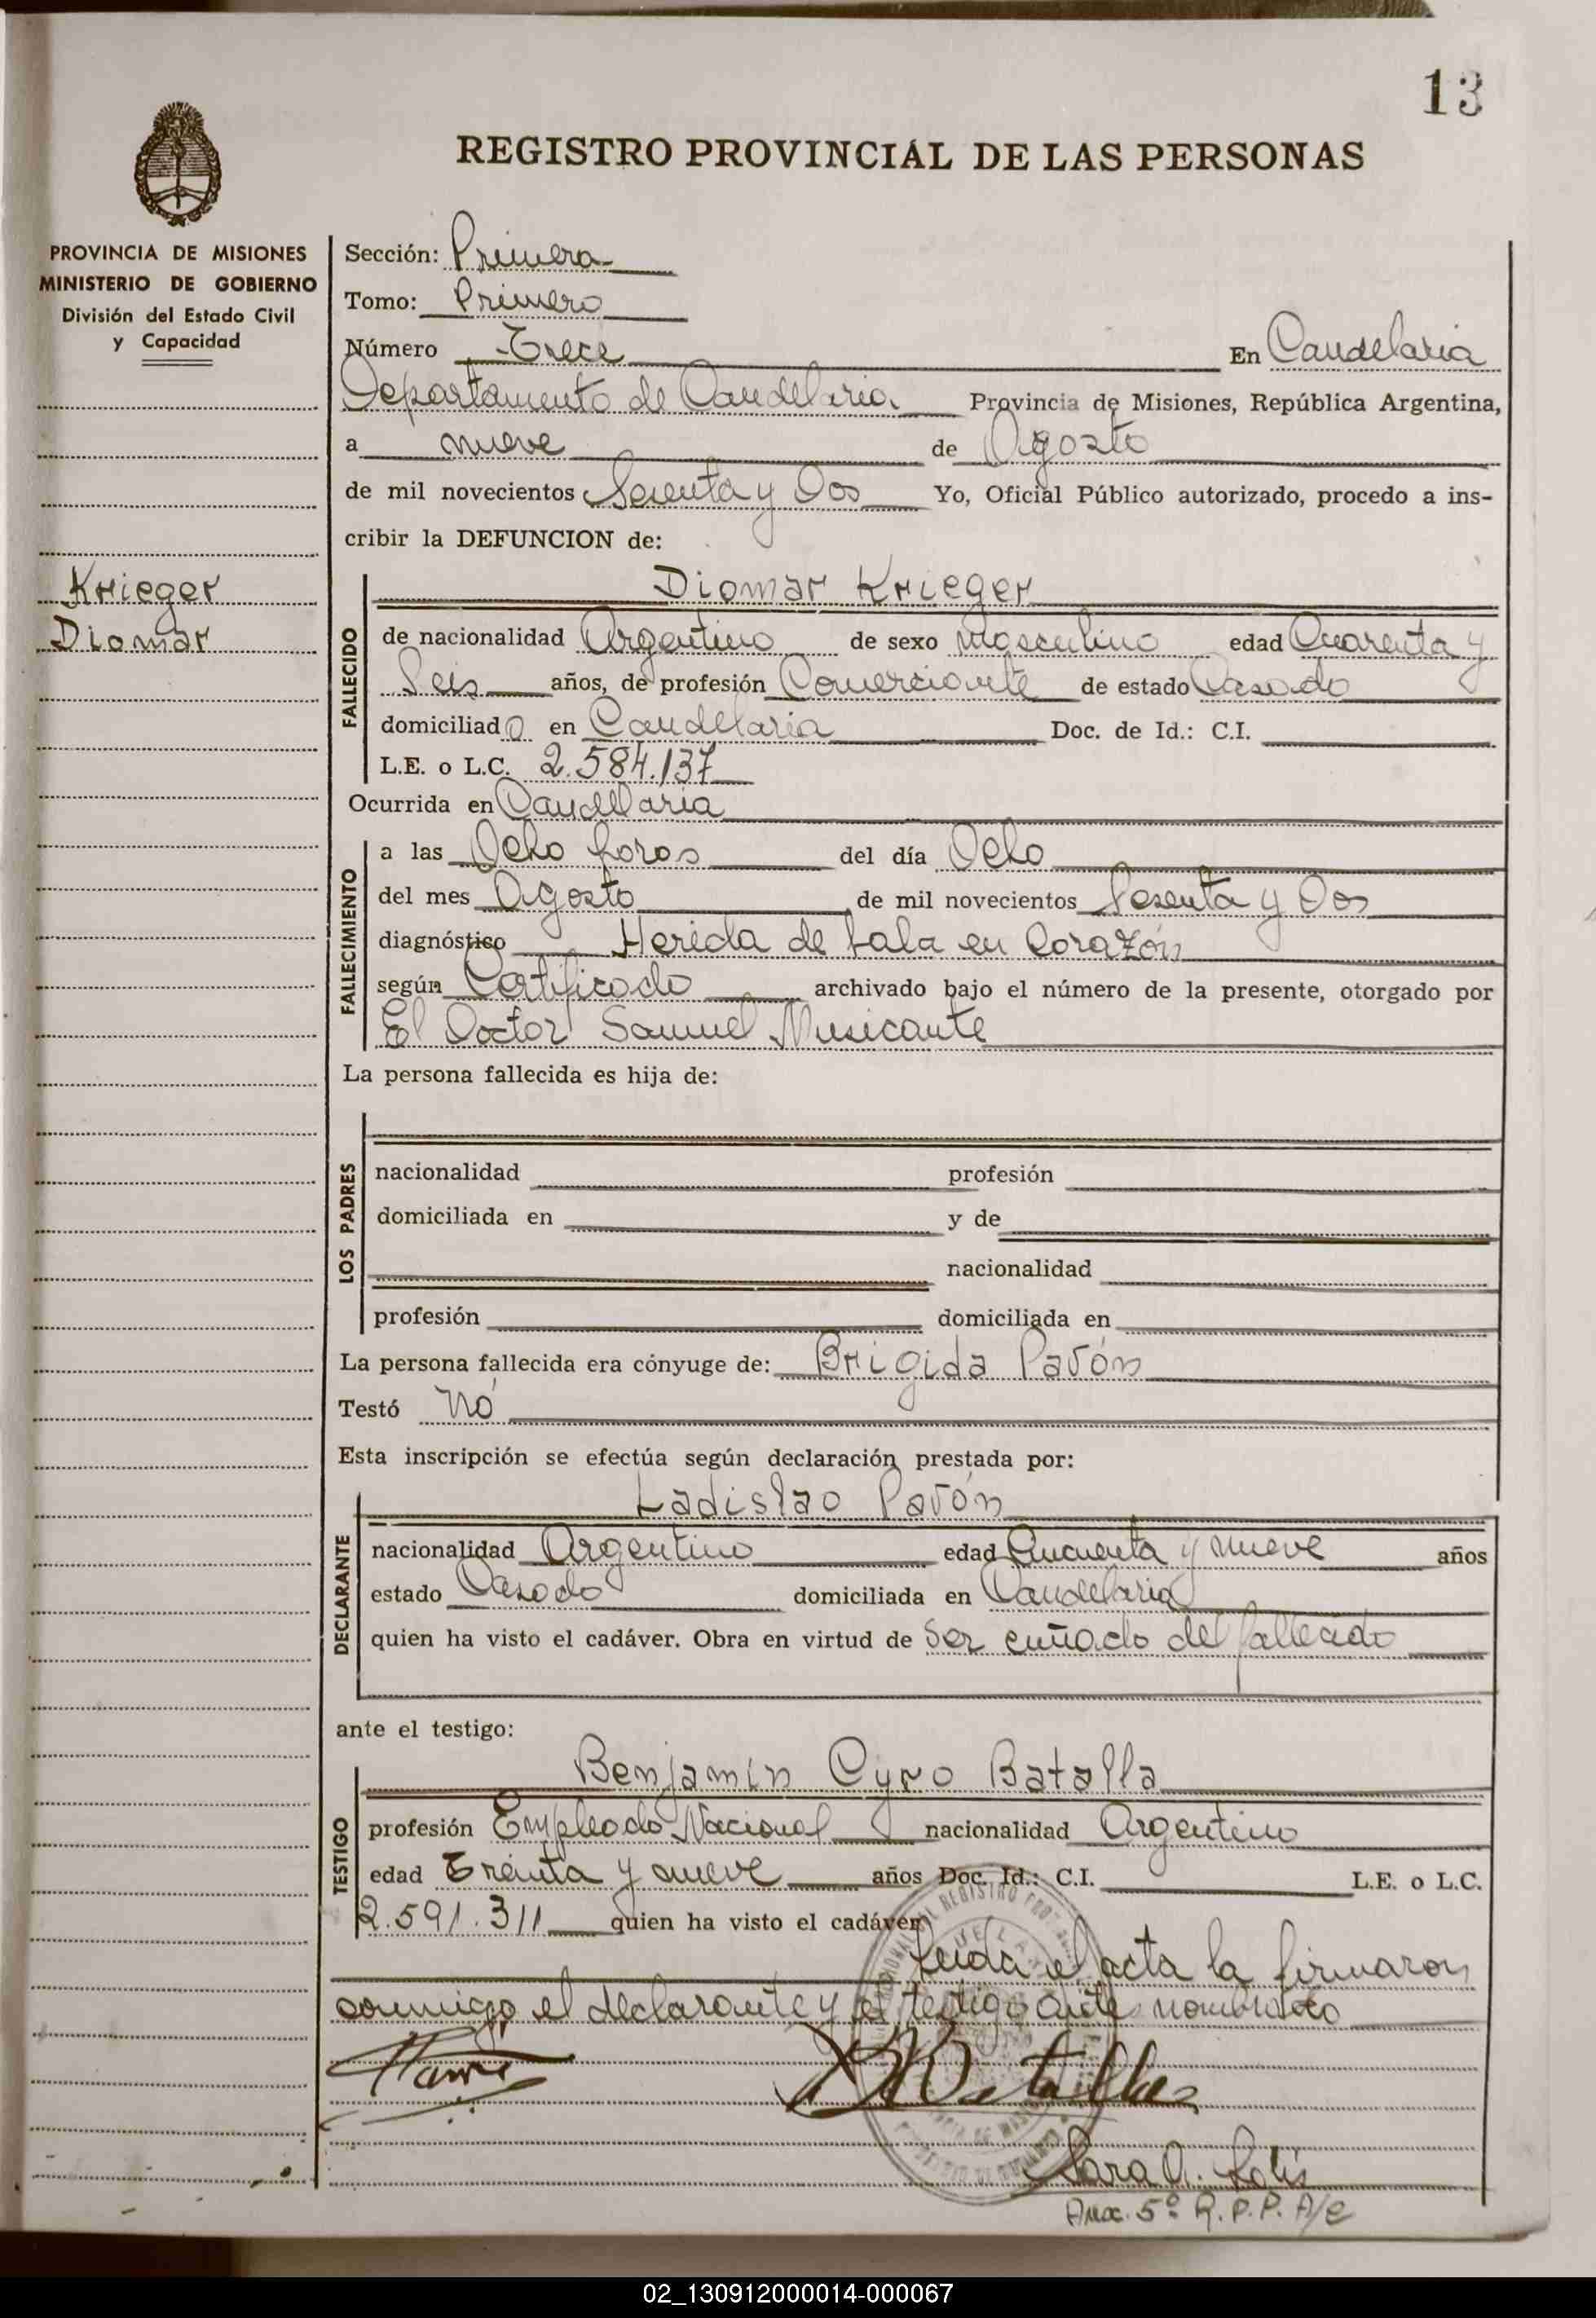 13
REGISTRO PROVINCIAL DE LAS PERSONAS
PROVINCIA DE MISIONES
MINISTERIO DE GOBIERNO
División del Estado Civil
y Capacidad
Krieger
Diomar
Sección: Primera
Tomo: Primero
Número Trece En Candelaria
Departamento de Candelaria Provincia de Misiones, República Argentina,
a nueve de Agosto
de mil novecientos Sesenta y Dos Yo, Oficial Público autorizado, procedo a ins-
cribir la DEFUNCION de:
FALLECIDO
Diomar Krieger
de nacionalidad Argentino de sexo Masculino edad Cuarenta y
Seis años, de profesión Comerciante de estado Casado
domiciliado en Candelaria Doc. de Id.: C.I.
L.E. o L.C. 2.584.137
Ocurrida en Candelaria
FALLECIMIENTO
a las Ocho horas del día Ocho
del mes Agosto de mil novecientos Sesenta y Dos
diagnóstico Herida de bala en Corazón
según Certificado archivado bajo el número de la presente, otorgado por
El Doctor Samuel Musicante
La persona fallecida es hija de:
LOS PADRES
nacionalidad profesión
domiciliada en y de
nacionalidad
profesión domiciliada en
La persona fallecida era cónyuge de: Brigida Pavón
Testó Nó
Esta inscripción se efectúa según declaración prestada por:
DECLARANTE
Ladislao Pavón
nacionalidad Argentino edad Cincuenta y nueve años
estado Casado domiciliada en Candelaria
quien ha visto el cadáver. Obra en virtud de Ser cuñado del fallecido
ante el testigo:
TESTIGO
Benjamin Cyro Batalla
profesión Empleado Nacional nacionalidad Argentino
edad Treinta y nueve años Doc. Id.: C.I. L.E. o L.C.
2.591.311 quien ha visto el cadáver
Leida el acta la firmaron
conmigo el declarante y el testigo ante nombrado
Batalla
Sara A. Solis
5º R.P.P. A/C
02_130912000014-000067